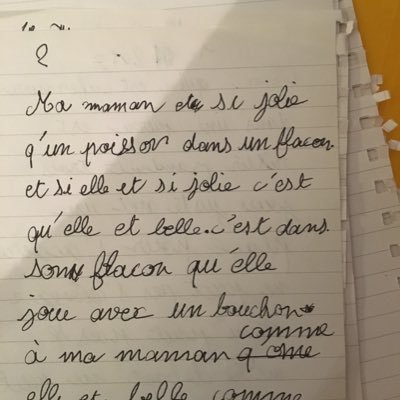 2
Ma maman et si jolie
q'un poisson dans un flacon.
et si elle et si jolie c'est
qu'elle et belle. c'est dans
son flacon qu'elle
joue avec un bouchon
comme
à ma maman q ome
elle et belle comme